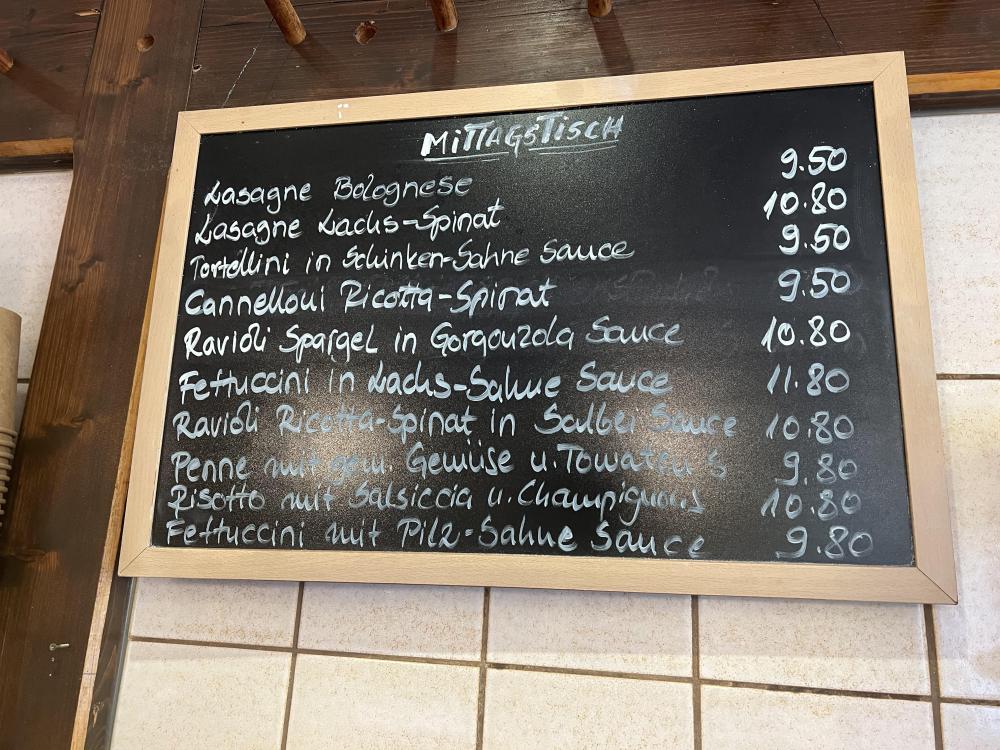 MITTAGSTISCH
Lasagne Bolognese 9.50
Lasagne Lachs-Spinat 10.80
Tortellini in Schinken-Sahne Sauce 9.50
Cannelloni Ricotta-Spinat 9.50
Ravioli Spargel in Gorgonzola Sauce 10.80
Fettuccini in Lachs-Sahne Sauce 11.80
Ravioli Ricotta-Spinat in Salbei Sauce 10.80
Penne mit gem. Gemüse u. Tomaten S 9.80
Risotto mit Salsiccia u. Champignons 10.80
Fettuccini mit Pilz-Sahne Sauce 9.80